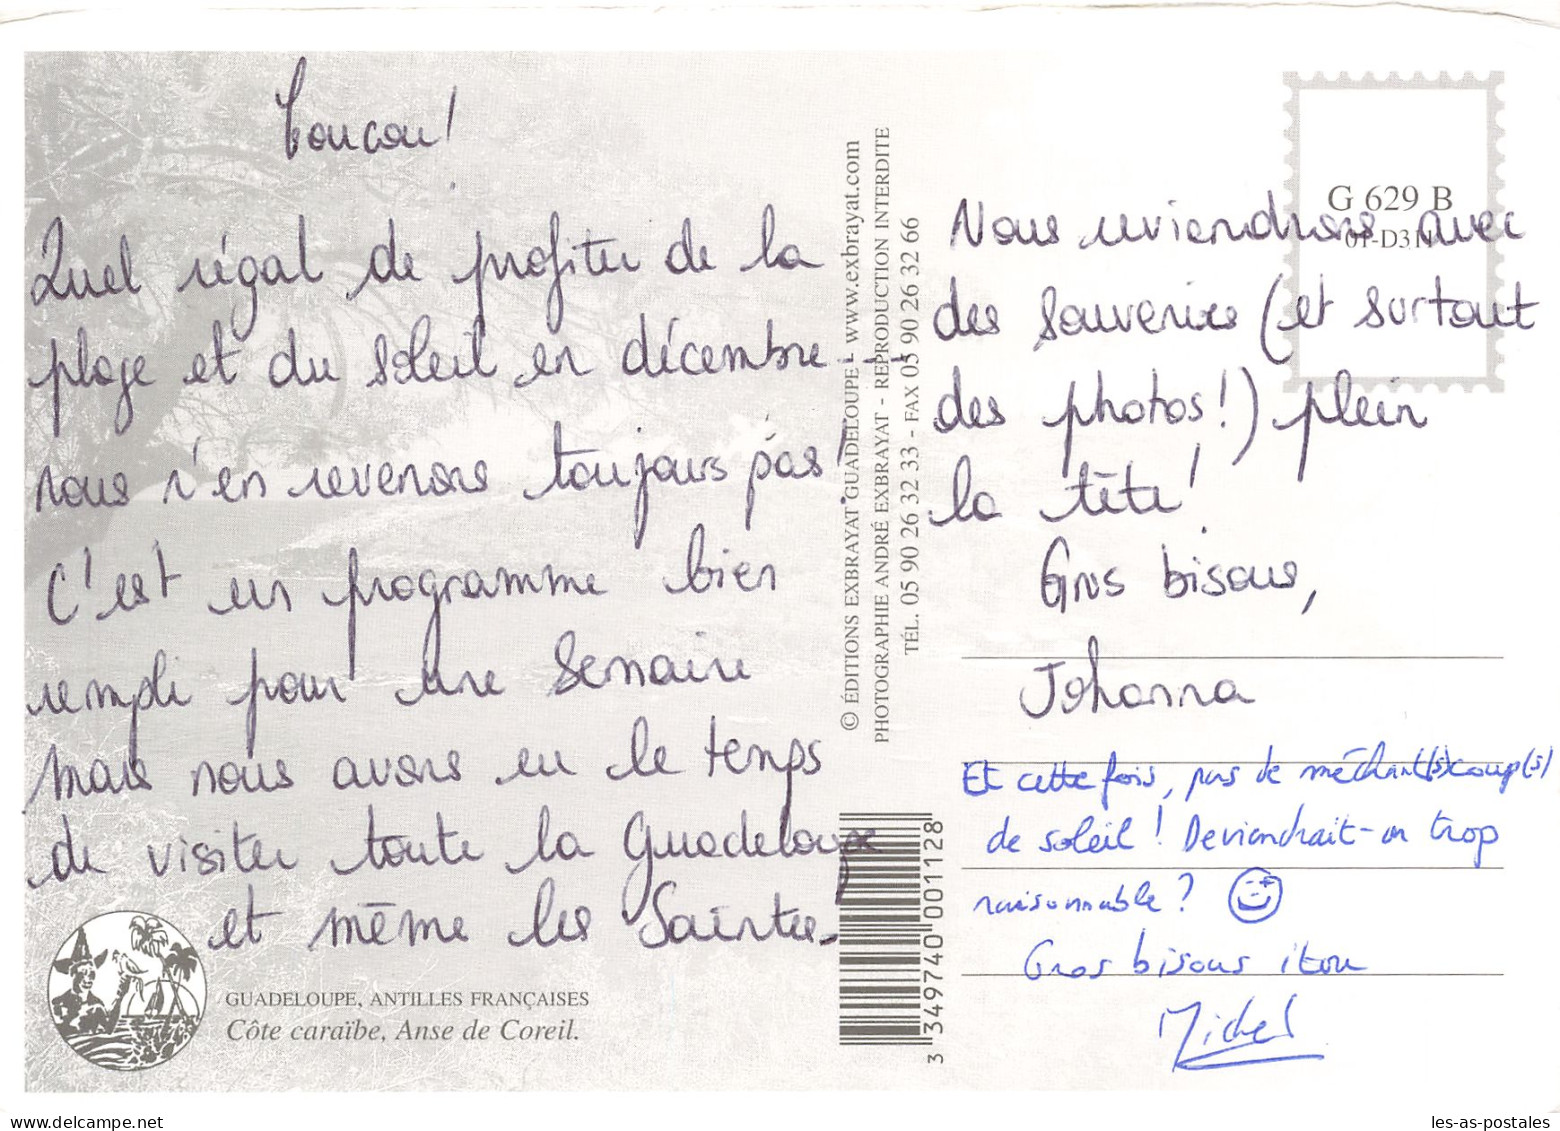 Coucou!
Quel régal de profiter de la
plage et du soleil en décembre---
nous n'en revenons toujours pas!
C'est un programme bien
rempli pour une semaine
mais nous avons eu le temps
de visiter toute la Guadeloupe
et même les Saintes.
GUADELOUPE, ANTILLES FRANÇAISES
Côte caraïbe, Anse de Coreil.
© ÉDITIONS EXBRAYAT GUADELOUPE - www.exbrayat.com
PHOTOGRAPHIE ANDRÉ EXBRAYAT - REPRODUCTION INTERDITE
TÉL. 05 90 26 32 33 - FAX 05 90 26 32 66
3 349740 001128
G 629 B
01-D311
Nous reviendrons avec
des souvenirs (et surtout
des photos!) plein
la tête!
Gros bisous,
Johanna
Et cette fois, pas de méchant(s) coup(s)
de soleil! Deviendrait-on trop
raisonnable?
Gros bisous itou
Michel
les-as-postales
www.delcampe.net